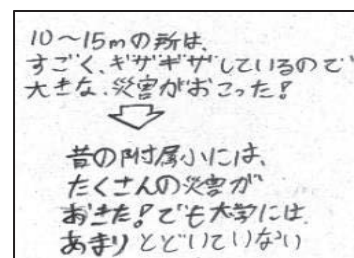 10～15mの所は、
すごく、ギザギザしているので
大きな、災害がおこった!
昔の附属小には、
たくさんの災害が
おきた!でも大学には、
あまりとどいていない